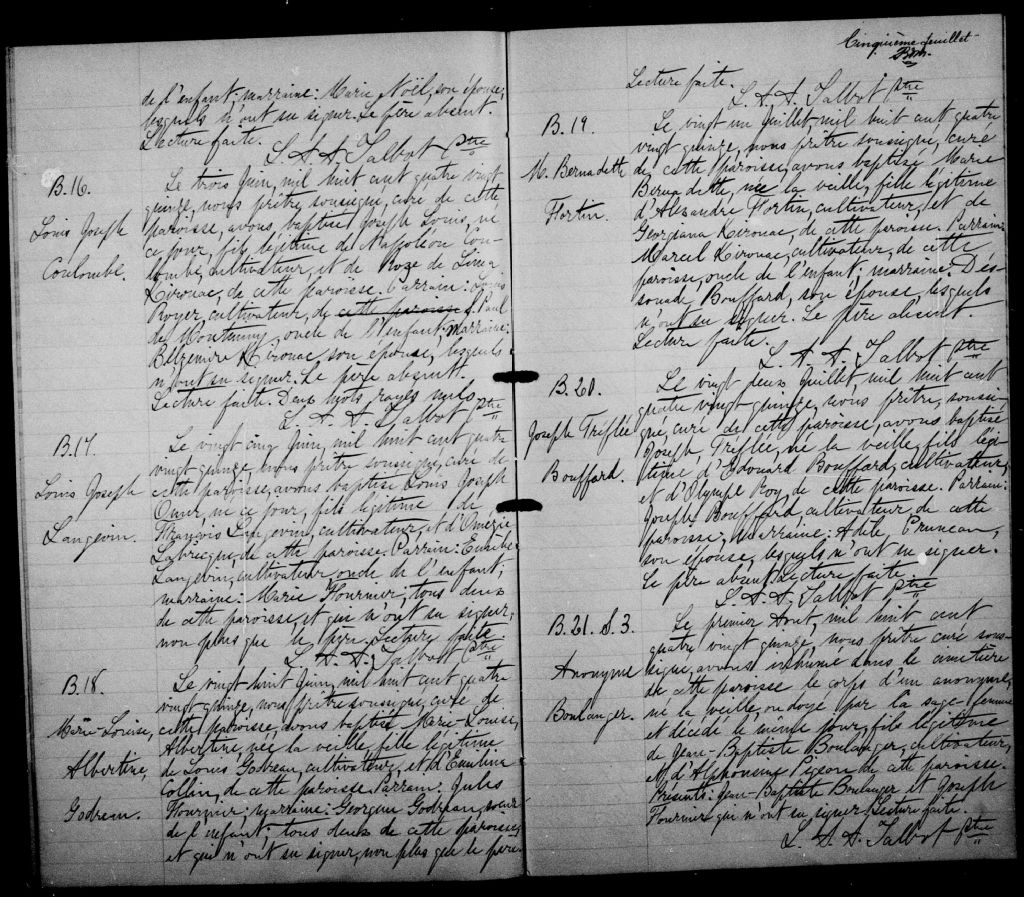 de l'enfant; marraine: Marie Noël, son épouse,
lesquels n'ont su signer. Le père absent.
Lecture faite.
L. A. A. Talbot Ptre
B. 16.
Louis Joseph
Coulombe.
Le trois Juin, mil huit cent quatre vingt
quinze, nous prêtre soussigné, curé de cette
paroisse, avons baptisé Joseph Louis, né
ce jour, fils légitime de Napoléon Cou-
lombe, cultivateur, et de Roze de Lima
Kirouac, de cette paroisse. Parrain: Louis
Royer cultivateur, de cette paroisse S. Paul
de Montminy, oncle de l'enfant; marraine:
Kirouac, son épouse, lesquels
n'ont su signer. Le père absent.
Lecture faite. Deux mots rayés nuls.
L. A. A. Talbot Ptre
B. 17.
Louis Joseph
Langevin.
Le vingt cinq Juin, mil huit cent quatre
vingt quinze, nous prêtre soussigné, curé de
cette paroisse, avons baptisé Louis Joseph
Omer, né ce jour, fils légitime de
François Langevin, cultivateur, et d'Omérie
Labrecque, de cette paroisse. Parrain:
Langevin, cultivateur, oncle de l'enfant;
marraine: Marie Fournier; tous deux
de cette paroisse, et qui n'ont su signer,
non plus que le père. Lecture faite.
L. A. A. Talbot Ptre
B. 18.
Marie-Louise,
Albertine,
Godreau.
Le vingt huit Juin, mil huit cent quatre
vingt-quinze, nous prêtre soussigné, curé de
cette paroisse, avons baptisé Marie-Louise,
Albertine, née la veille, fille légitime
de Louis Godreau, cultivateur, et d'Emeline
Collin, de cette paroisse. Parrain: Jules
Fournier; marraine: Georgina Godreau, soeur
de l'enfant; tous deux de cette paroisse,
et qui n'ont su signer, non plus que le père.
Cinquième feuillet
Lecture faite.
L. A. A. Talbot Ptre
B. 19.
M. Bernadette
Fortin.
Le vingt un Juillet, mil huit cent quatre
vingt quinze, nous prêtre soussigné, curé
de cette paroisse, avons baptisé Marie
Bernadette, née la veille, fille légitime
d'Alexandre Fortin, cultivateur, et de
Georgiana Kirouac, de cette paroisse. Parrain:
Marcel Kirouac, cultivateur, de cette
paroisse, oncle de l'enfant; marraine: Dés-
Bouffard, son épouse, lesquels
n'ont su signer. Le père absent.
Lecture faite.
L. A. A. Talbot Ptre
B. 20.
Joseph Trifflée
Bouffard.
Le vingt deux Juillet, mil huit cent
quatre vingt-quinze, nous prêtre, soussi-
gné, curé de cette paroisse, avons baptisé
Joseph Trifflée, né la veille, fils légi-
time d'Edouard Bouffard, cultivateur,
et d'Olympe Roy, de cette paroisse. Parrain:
Joseph Bouffard cultivateur de cette
paroisse, marraine: Adèle Pruneau,
son épouse, lesquels n'ont su signer.
Le père absent. Lecture faite.
L. A. A. Talbot Ptre
B. 21. S. 3.
Anonyme
Boulanger.
Le premier Aout, mil huit cent
quatre vingt quinze, nous prêtre curé sous-
signé, avons inhumé dans le cimetière
de cette paroisse le corps d'un anonyme,
né la veille, ondoyé par la sage-femme
et décédé le même jour, fils légitime
de Jean-Baptiste Boulanger, cultivateur,
et d'Alphonsine Pigeon de cette paroisse.
Présents: Jean-Baptiste Boulanger et Joseph
Fournier qui n'ont su signer. Lecture faite.
L. A. A. Talbot Ptre